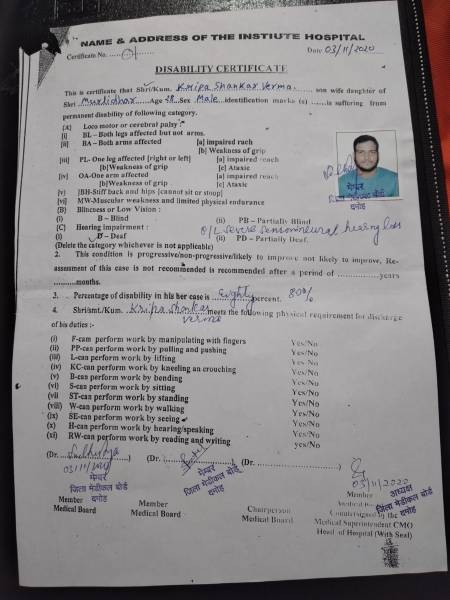 NAME & ADDRESS OF THE INSTIUTE HOSPITAL
Certificate No. ..... 01 ..... Date 03/11/2020
DISABILITY CERTIFICATE
This is certificate that Shri/Kum. Kripa Shankar Verma ..... son wife daughter of
Shri Murlidhar Age 28 Sex Male identification marks (s) ......is suffering from
permanent disability of following category.
(A) Loco motor or cerebral palsy
[i] BL- Both legs affected but not arms.
[ii] BA - Both arms affected [a] impaired reach
[b] Weakness of grip
[iii] PL- One leg affected [right or left] [a] impaired reach
[b]Weakness of grip [c] Ataxic
[iv] OA-One arm affected [a] impaired reach
[b]Weakness of grip [c] Ataxic
[v] BH-Stiff back and hips [cannot sit or stoop]
[vi] MW-Muscular weakness and limited physical endurance
(B) Blindness or Low Vision :
(i) B – Blind (ii) PB – Partially Blind
(C) Hearing impairment : B/L severe sensorineural hearing loss
(i) D – Deaf (ii) PD – Partially Deaf
(Delete the category whichever is not applicable)
2. This condition is progressive/non-progressive/likely to improve not likely to improve, Re-
assessment of this case is not recommended is recommended after a period of ............years
.........months.
3. Percentage of disability in his her case is Eighty percent. 80%
4. Shri/smt./Kum. Kripa Shankar Verma meets the following physical requirement for discharge
of his duties :-
(i) F-can perform work by manipulating with fingers Yes/No
(ii) PP-can perform work by pulling and pushing Yes/No
(iii) L-can perform work by lifting Yes/No
(iv) KC-can perform work by kneeling an crouching Yes/No
(v) B-can perform work by bending Yes/No
(vi) S-can perform work by sitting Yes/No
(vii ST-can perform work by standing Yes/No
(viii) W-can perform work by walking Yes/No
(ix) SE-can perform work by seeing Yes/No
(x) H-can perform work by hearing/speaking Yes/No
(xi) RW-can perform work by reading and writing yes/No
(Dr. ..........) (Dr. ..........) (Dr. ....................)
03/11/2020 03/11/2020
मेम्बर मेम्बर अध्यक्ष
जिला मेडीकल बोर्ड जिला मेडीकल बोर्ड जिला मेडीकल बोर्ड
दमोह दमोह
Member Member Chairperson Member
Medical Board Medical Board Medical Board Medical Board
Countersigned by the
Medical Superintendent CMO
Head of Hospital (With Seal)
मेम्बर
जिला मेडीकल बोर्ड
दमोह